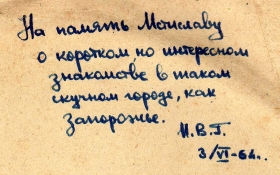 На память Мстиславу
о коротком, но интересном
знакомстве в таком
скучном городе, как
Запорожье.
И.В.Г.
3/VI-64..